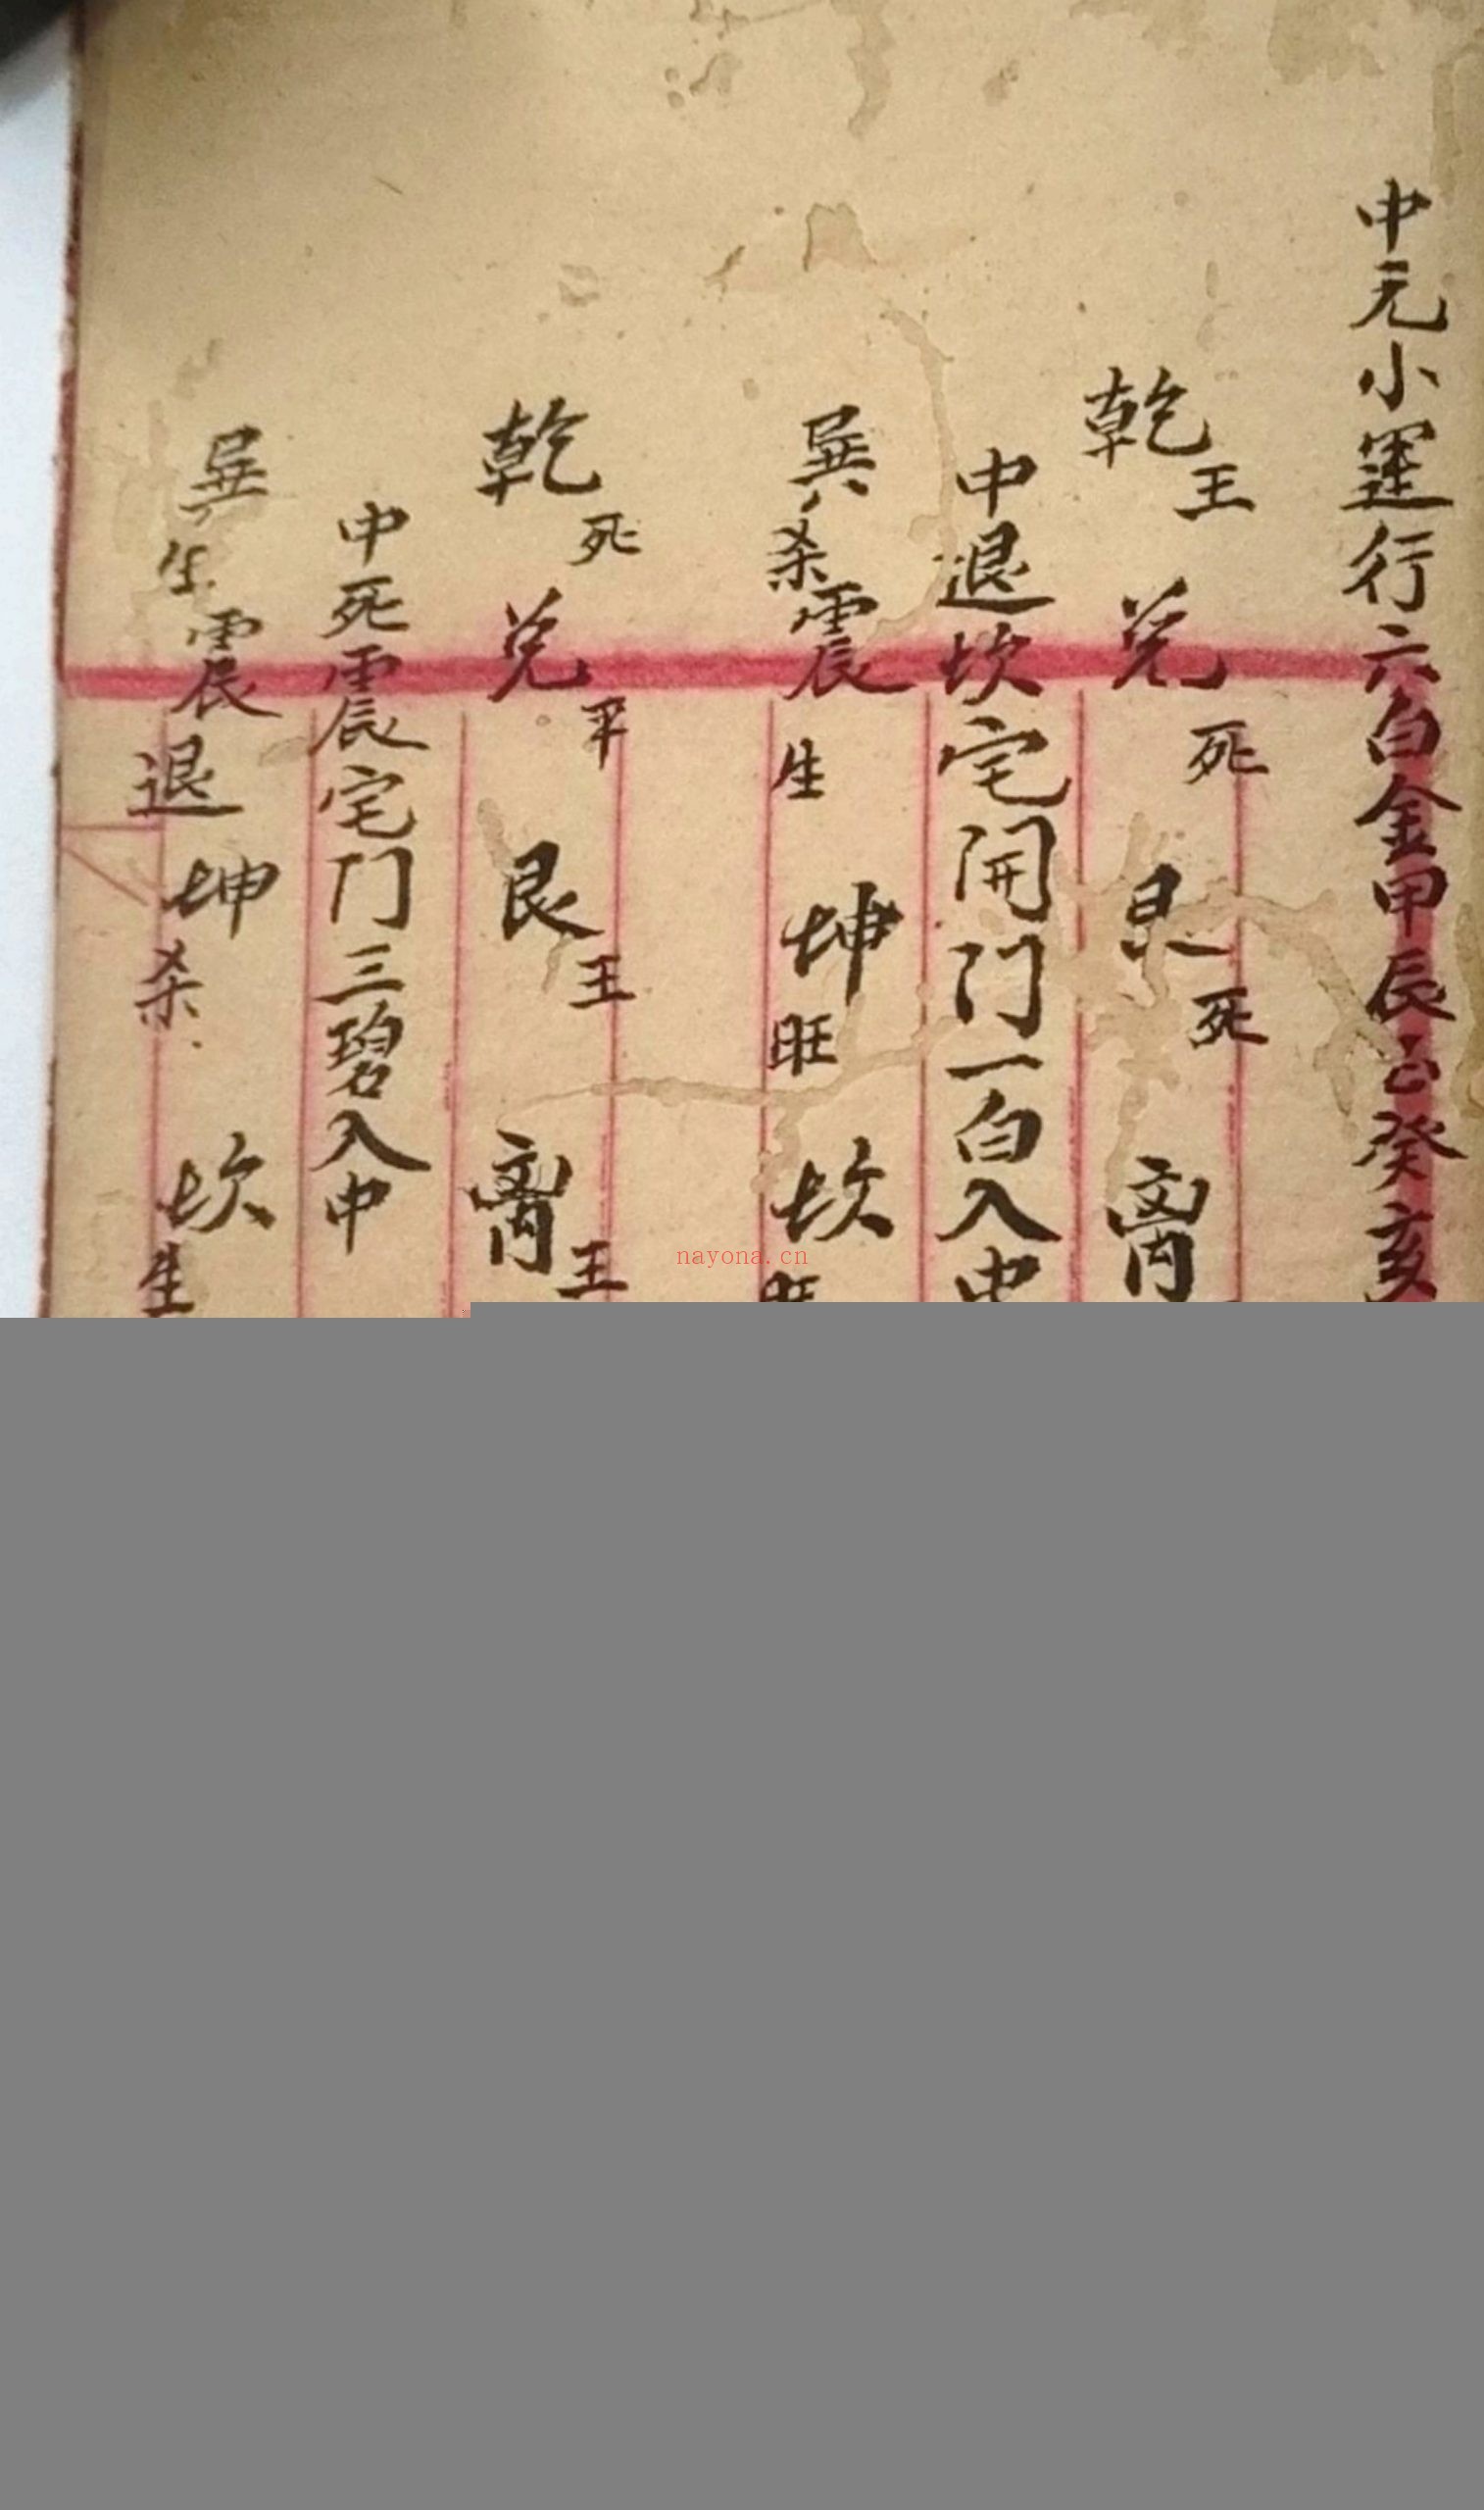 中元小運行六白金甲辰至癸亥
乾王 兌死 艮死 离
中退坎宅開門一白入中
巽杀震生 坤旺 坎旺
乾死 兌平 艮王 离王
中死震宅门三碧入中
巽生震退坤杀 坎生
nayona.cn